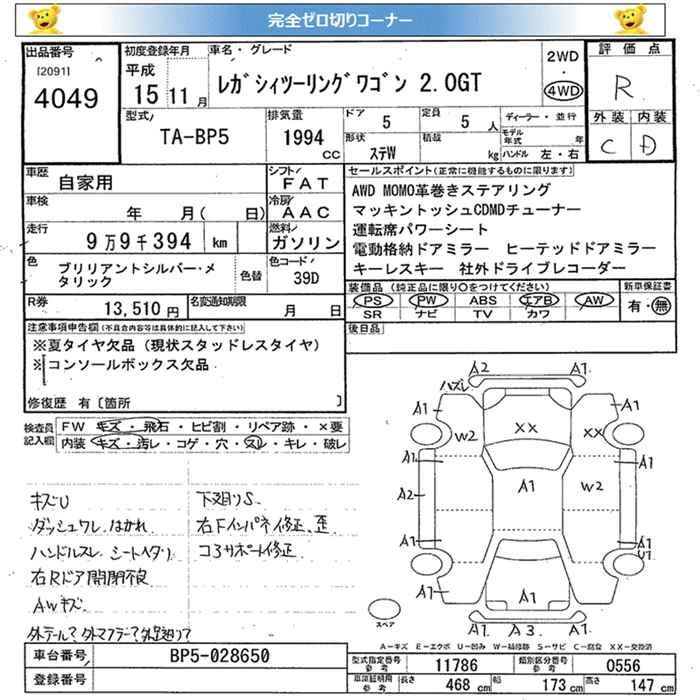 完全ゼロ切りコーナー
出品番号
[2091]
4049
初度登録年月
平成
15 11 月
車名・グレード
レガシィツーリングワゴン 2.0GT
2WD
・
4WD
評価点
R
外装 内装
C D
型式
TA-BP5
排気量
1994
cc
ドア
5
形状
ステW
定員
5 人
積載
kg
ディーラー・並行
モデル年式 年
ハンドル 左・右
車歴
自家用
シフト
FAT
車検
年 月( 日)
冷房
AAC
走行
9万9千394 km
燃料
ガソリン
色
ブリリアントシルバー・メ
タリック
色替
色コード
39D
R券
13,510円
名変通知期限
月 日
セールスポイント(正常に機能するものに限ります)
AWD MOMO革巻きステアリング
マッキントッシュCDMDチューナー
運転席パワーシート
電動格納ドアミラー ヒーテッドドアミラー
キーレスキー 社外ドライブレコーダー
装備品(純正品に限り○をつけてください)
PS PW ABS エアB AW
SR ナビ TV カワ
新車保証書
有・無
後日品
注意事項申告欄(不具合内容等は具体的に記入して下さい)
※夏タイヤ欠品(現状スタッドレスタイヤ)
※コンソールボックス欠品
修復歴 有〔箇所 〕
検査員
記入欄
FW キズ・飛石・ヒビ割・リペア跡・×要
内装 キズ・汚レ・コゲ・穴・スレ・キレ・破レ
キズU
ダッシュワレ、はがれ
ハンドルスレ シートヘタリ
右Rドア開閉不良
AWキズ
外テール?外マフラー?外足廻り?
下廻りS
右Fインパネ修正、歪
コアサポート修正
A2 A1
ハズレ
A1 A1
W2 XX XX
A1 A1
A2 A1 W2
A1 A1
U1
A1 A1 A1
A1 A3 A1
スペア
A=キズ E=エクボ U=凹み W=補修跡 S=サビ C=腐食 XX=交換済
車台番号
BP5-028650
登録番号
型式指定番号
参考
11786
類別区分番号
参考
0556
車庫証明用
参考
長さ 468 cm
幅 173 cm
高さ 147 cm